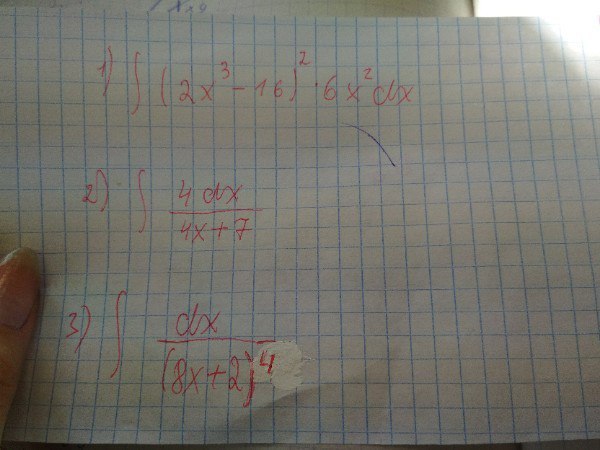 1) ∫ (2x³ - 16)² · 6x² dx
2) ∫ 4 dx / 4x + 7
3) ∫ dx / (8x + 2)⁴